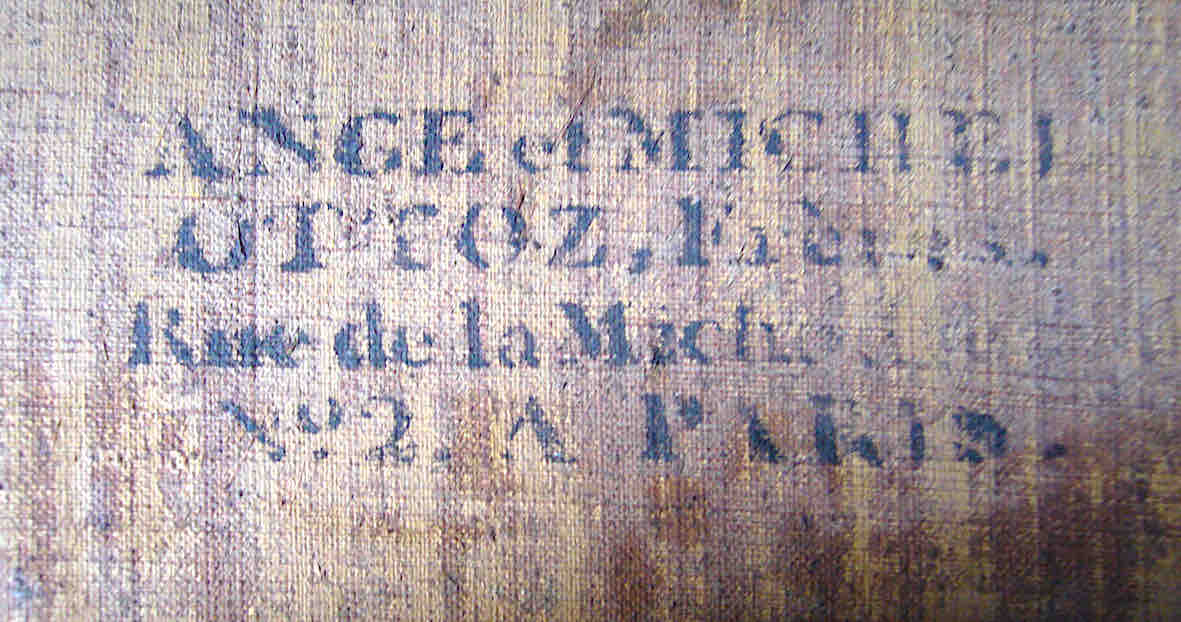 ANGE et MICHEL
OTTOZ, Frères,
Rue de la
Nº 2. A PARIS.